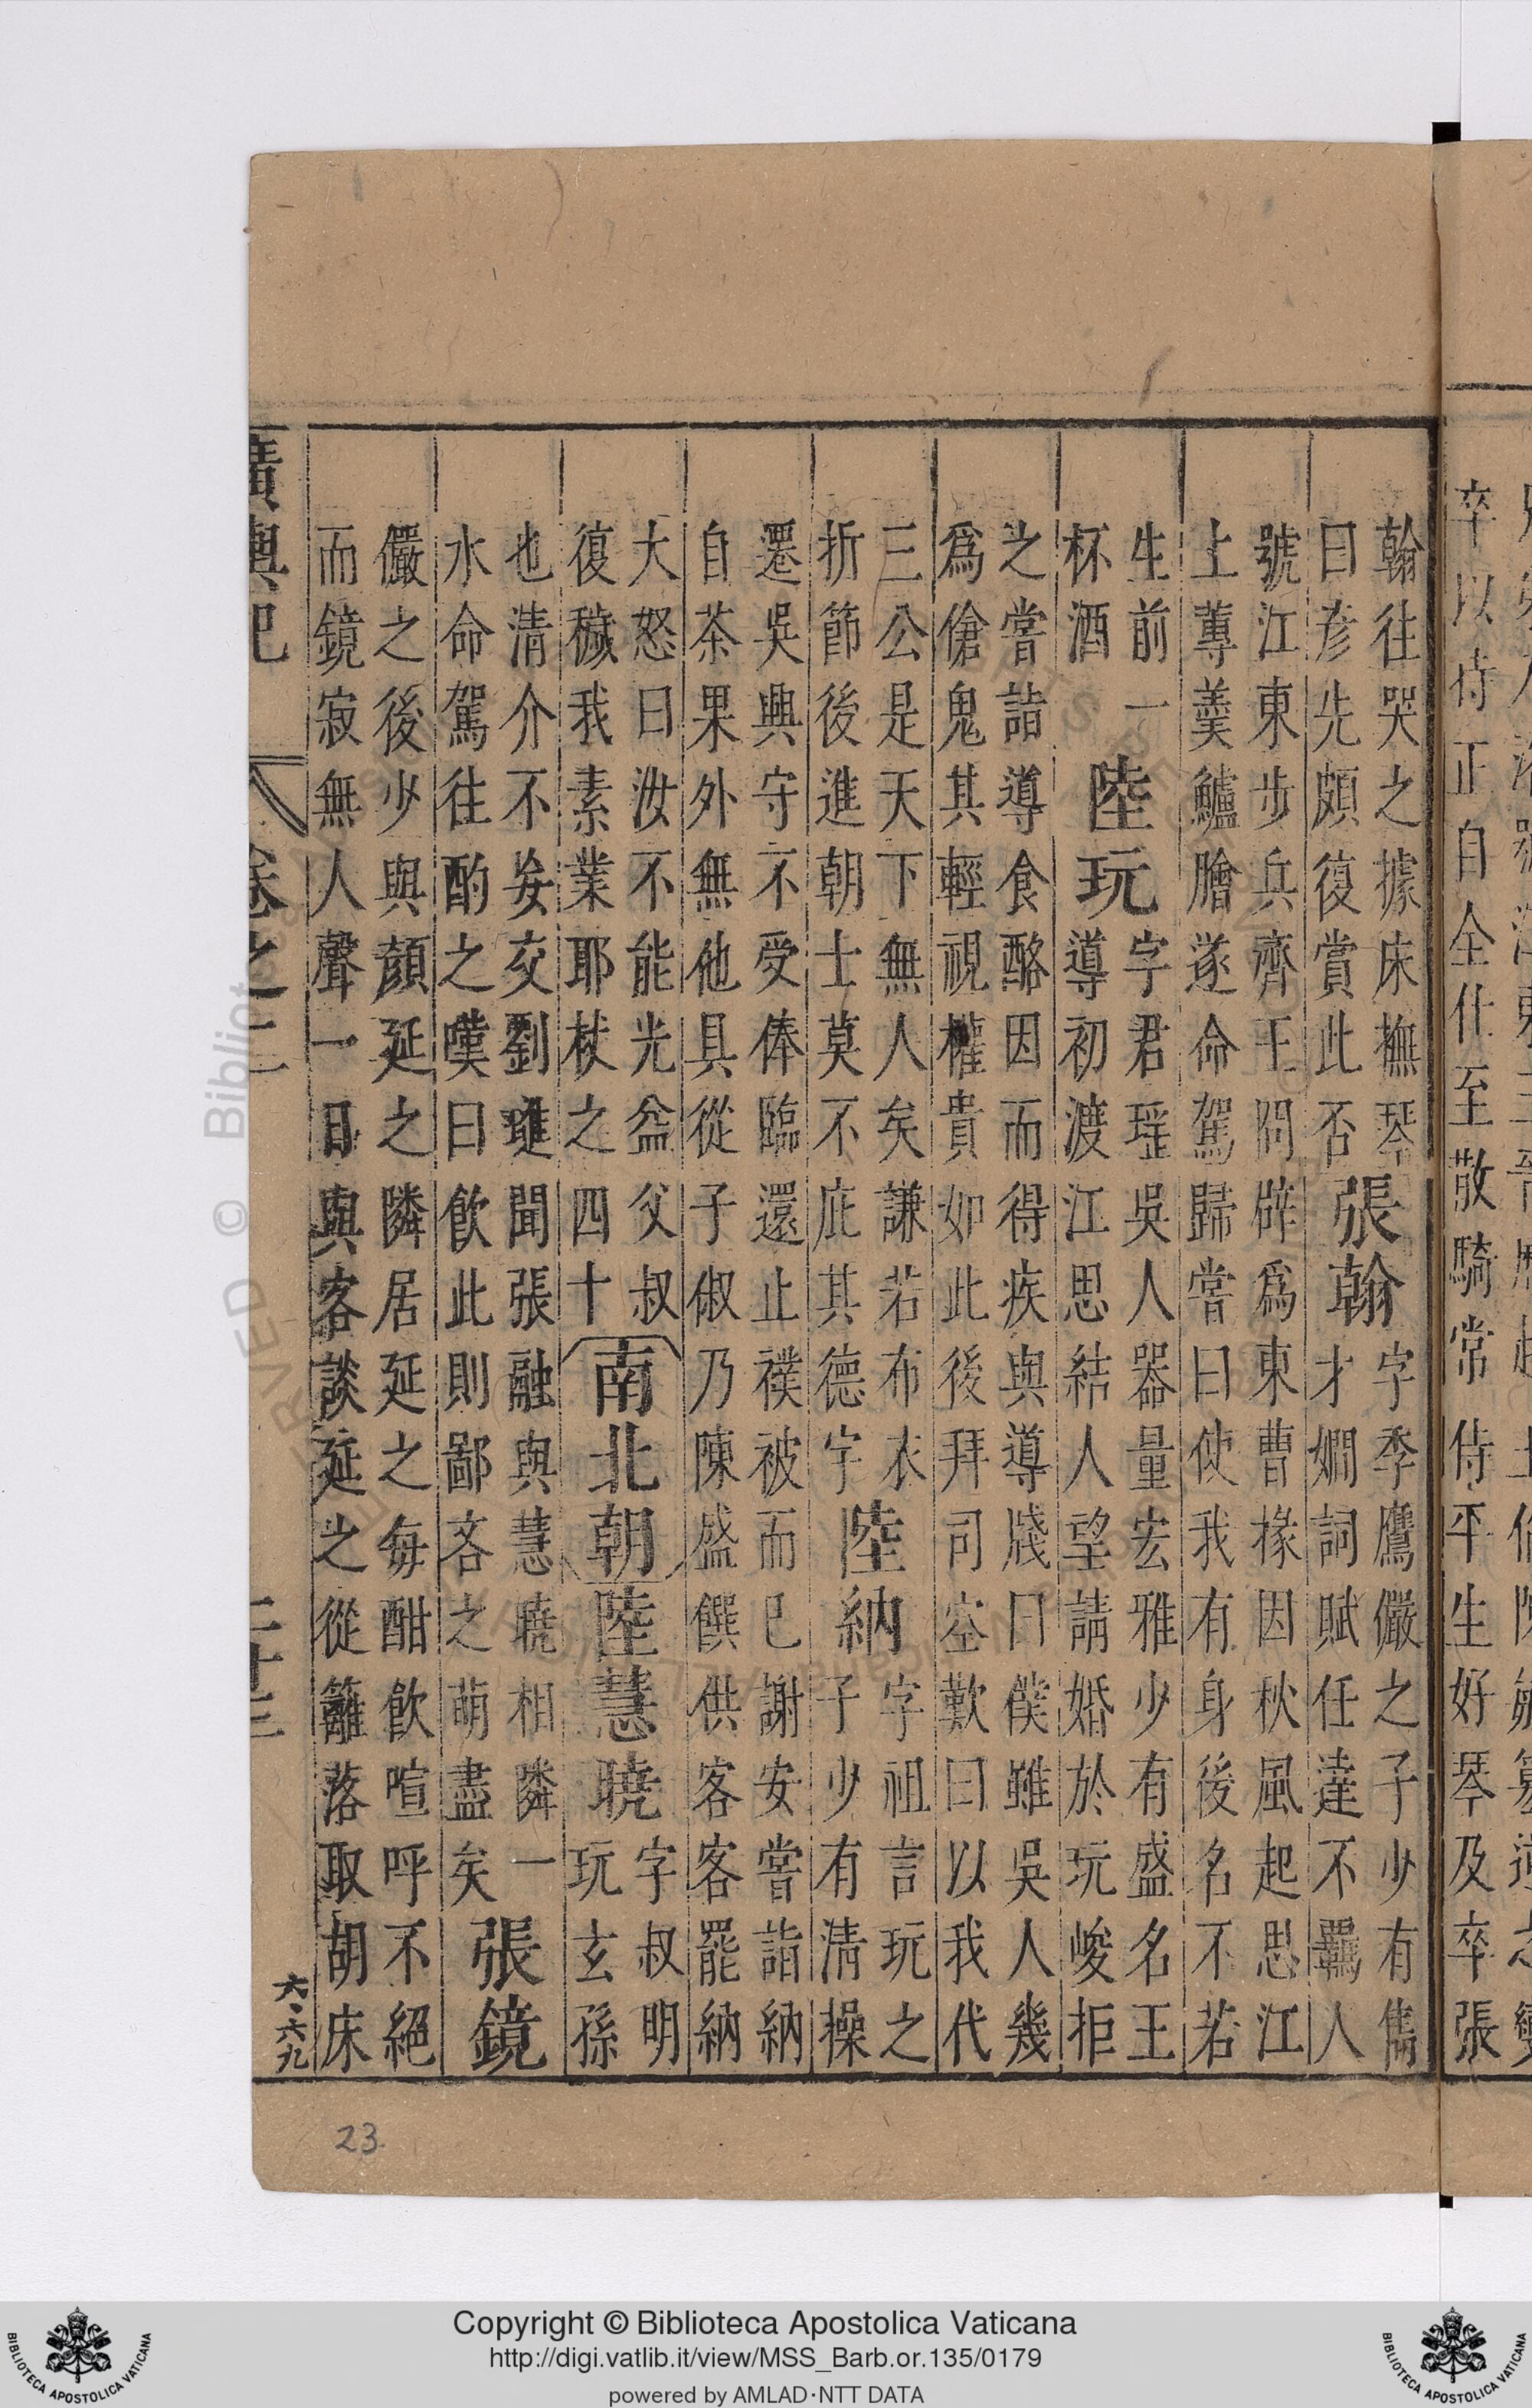 卒以待正自全仕至散騎常侍平生好琴及卒張
翰往哭之據床撫琴
曰彦先頗復賞此否
張翰
字季鷹儼之子少有雋
才嫺詞賦任達不羈人
號江東步兵齊王冏辟爲東曹掾因秋風起思江
上蓴羹鱸膾遂命駕歸嘗曰使我有身後名不若
生前一
杯酒
陸玩
字君瑤吳人器量宏雅少有盛名王
導初渡江思結人望請婚於玩峻拒
之嘗詣導食酪因而得疾與導牋曰僕雖吳人幾
爲傖鬼其輕視權貴如此後拜司空歎曰以我代
三公是天下無人矣謙若布衣
折節後進朝士莫不庇其德宇
陸納
字祖言玩之
子少有清操
遷吳興守不受俸臨還止襆被而已謝安嘗詣納
自茶果外無他具從子俶乃陳盛饌供客客罷納
大怒曰汝不能光益父叔
復穢我素業耶杖之四十
南北朝
陸慧曉
字叔明
玩玄孫
也清介不妄交劉璡聞張融與慧曉相隣一
水命駕往酌之嘆曰飲此則鄙吝之萌盡矣
張鏡
儼之後少與顏延之隣居延之每酣飲喧呼不絕
而鏡寂無人聲一日與客談延之從籬落取胡床
廣輿記
卷之二
二十三
六.六九
23
Copyright © Biblioteca Apostolica Vaticana
http://digi.vatlib.it/view/MSS_Barb.or.135/0179
powered by AMLAD·NTT DATA
BIBLIOTECA APOSTOLICA VATICANA
BIBLIOTECA APOSTOLICA VATICANA